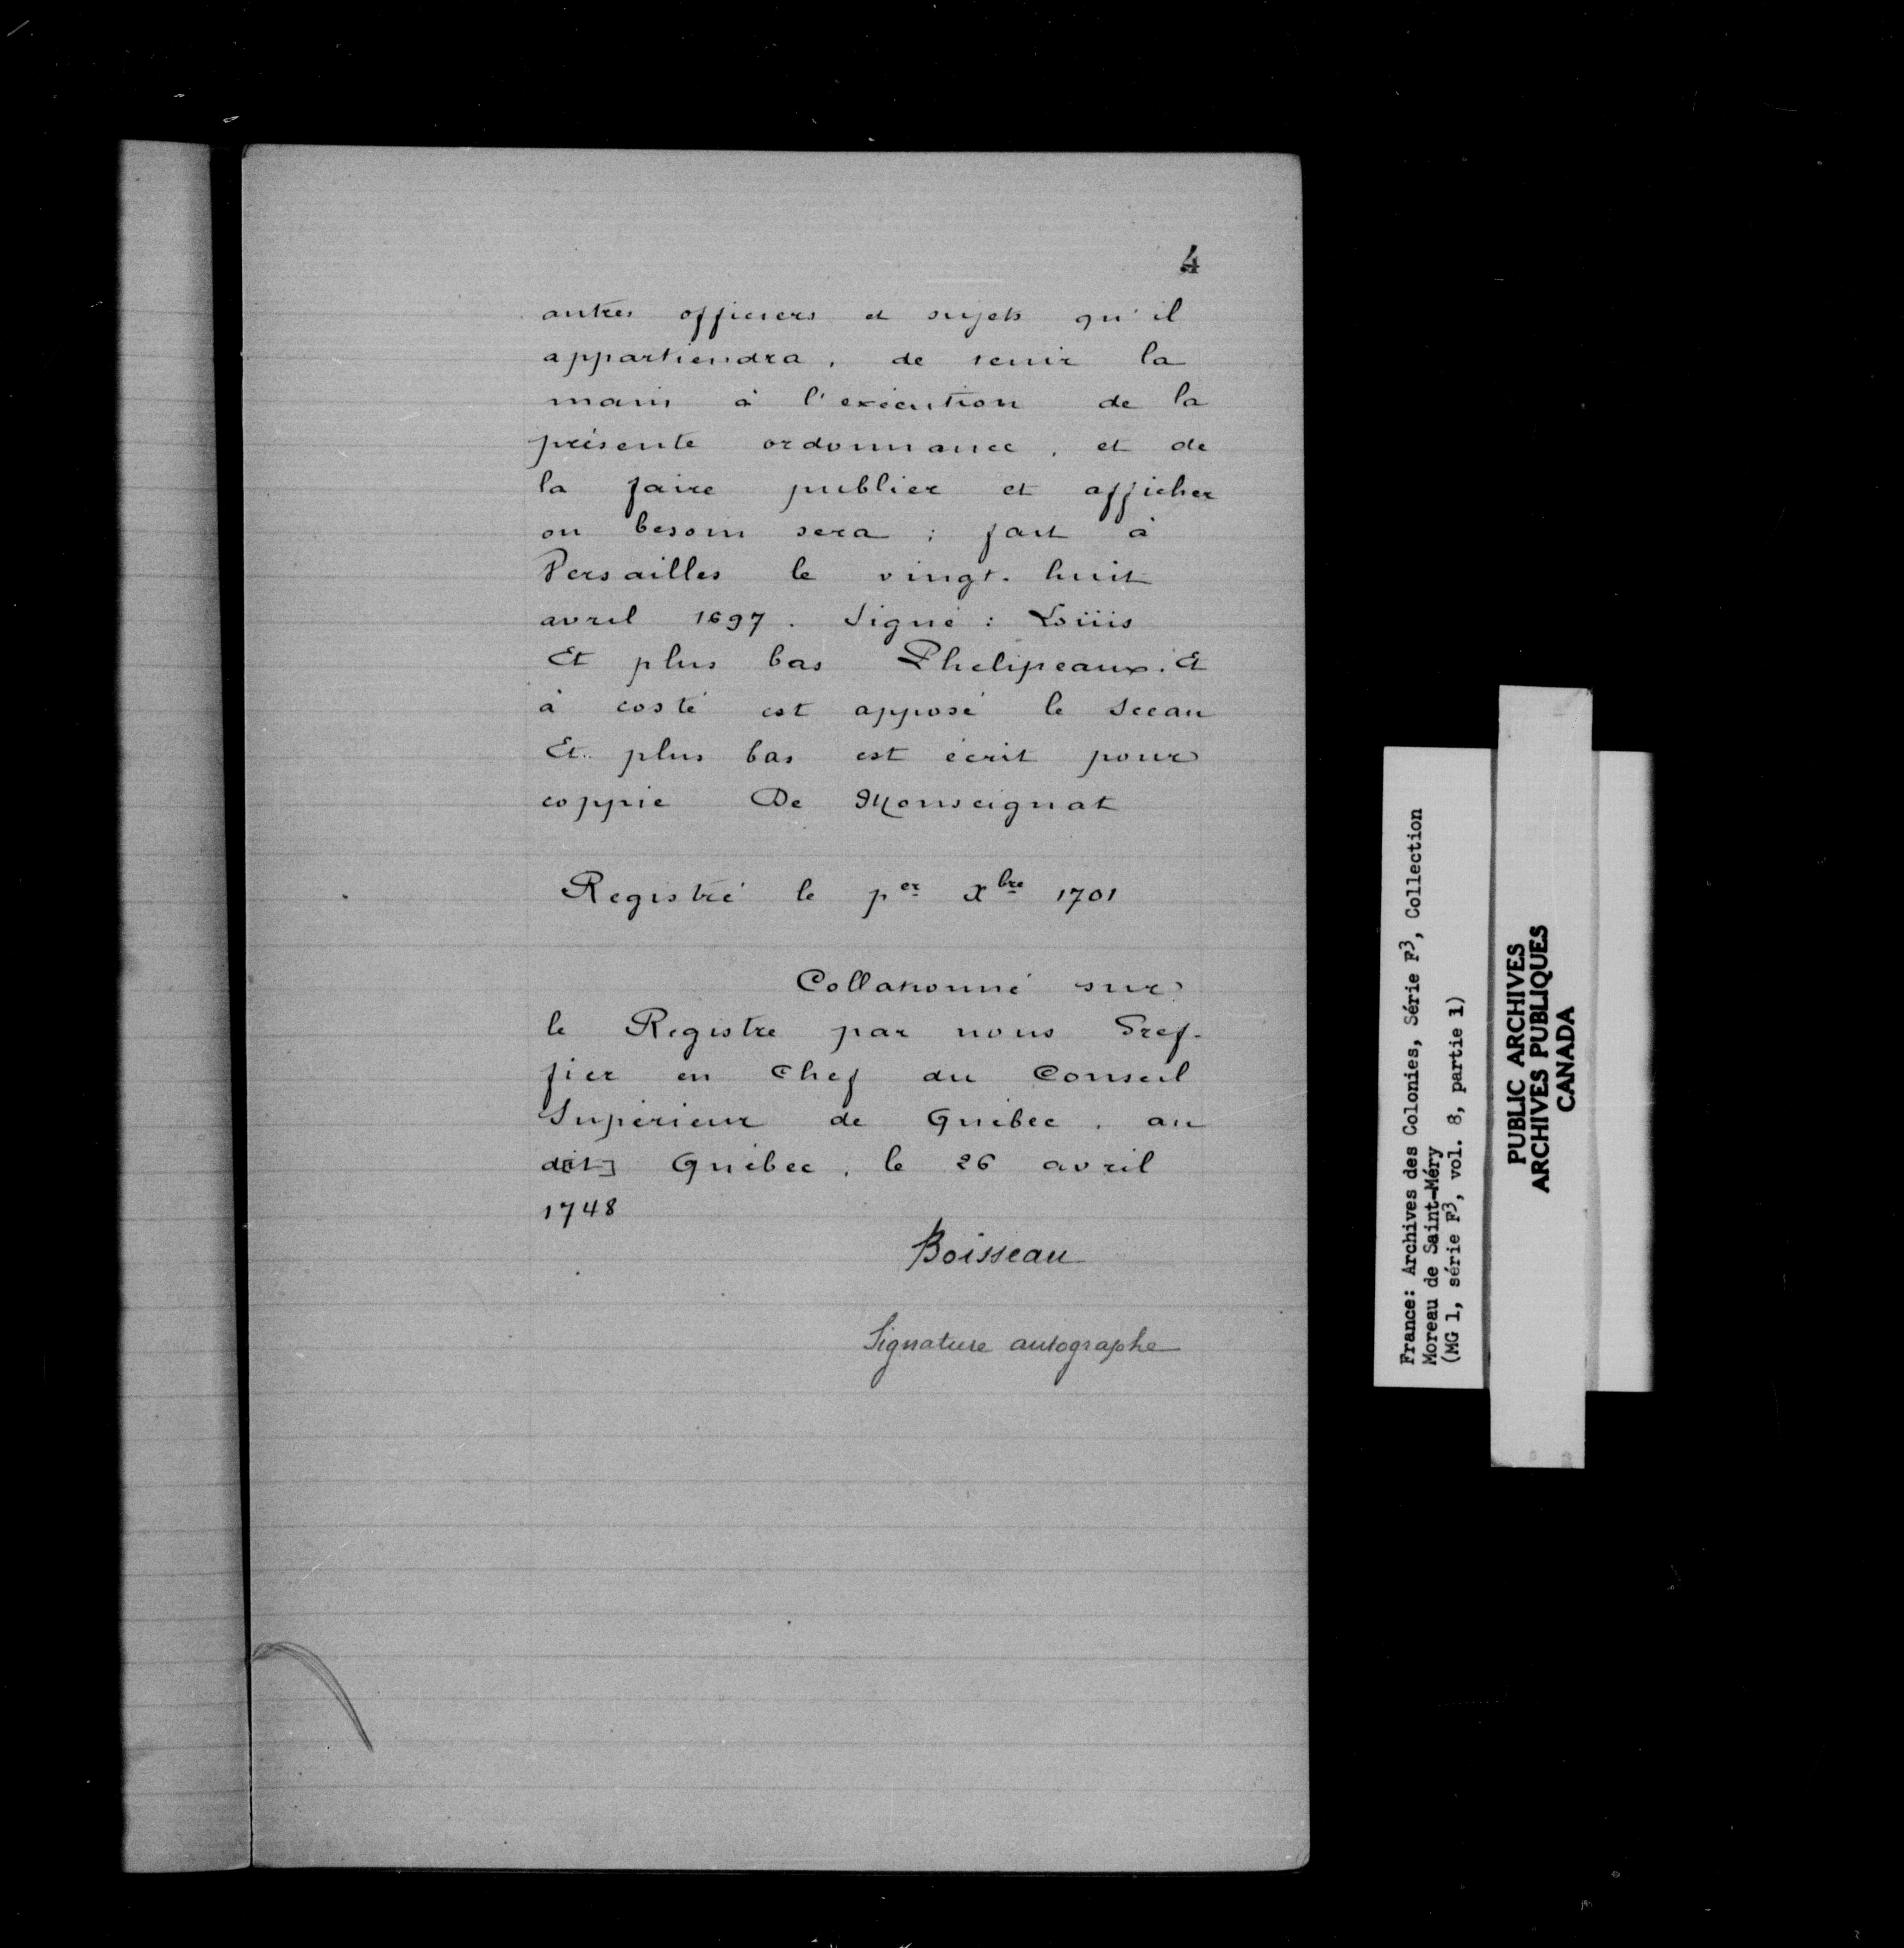 4
autres officiers et sujets qu'il
appartiendra, de tenir la
main à l'exécution de la
présente ordonnance, et de
la faire publier et afficher
ou besoin sera ; fait à
Versailles le vingt-huit
avril 1697. Signé : Loüis
Et plus bas Phelipeaux. Et
à costé est apposé le Sceau
Et plus bas est écrit pour
coppie De Monseignat
Registré le per Xbre 1701
Collationné sur
le Registre par nous Gref-
fier en Chef du Conseil
Supérieur de Québec, au
d[it] Québec, le 26 avril
1748
Boisseau
Signature autographe
France: Archives des Colonies, Série F3, Collection
Moreau de Saint-Méry
(MG 1, série F3, vol. 8, partie 1)
PUBLIC ARCHIVES
ARCHIVES PUBLIQUES
CANADA